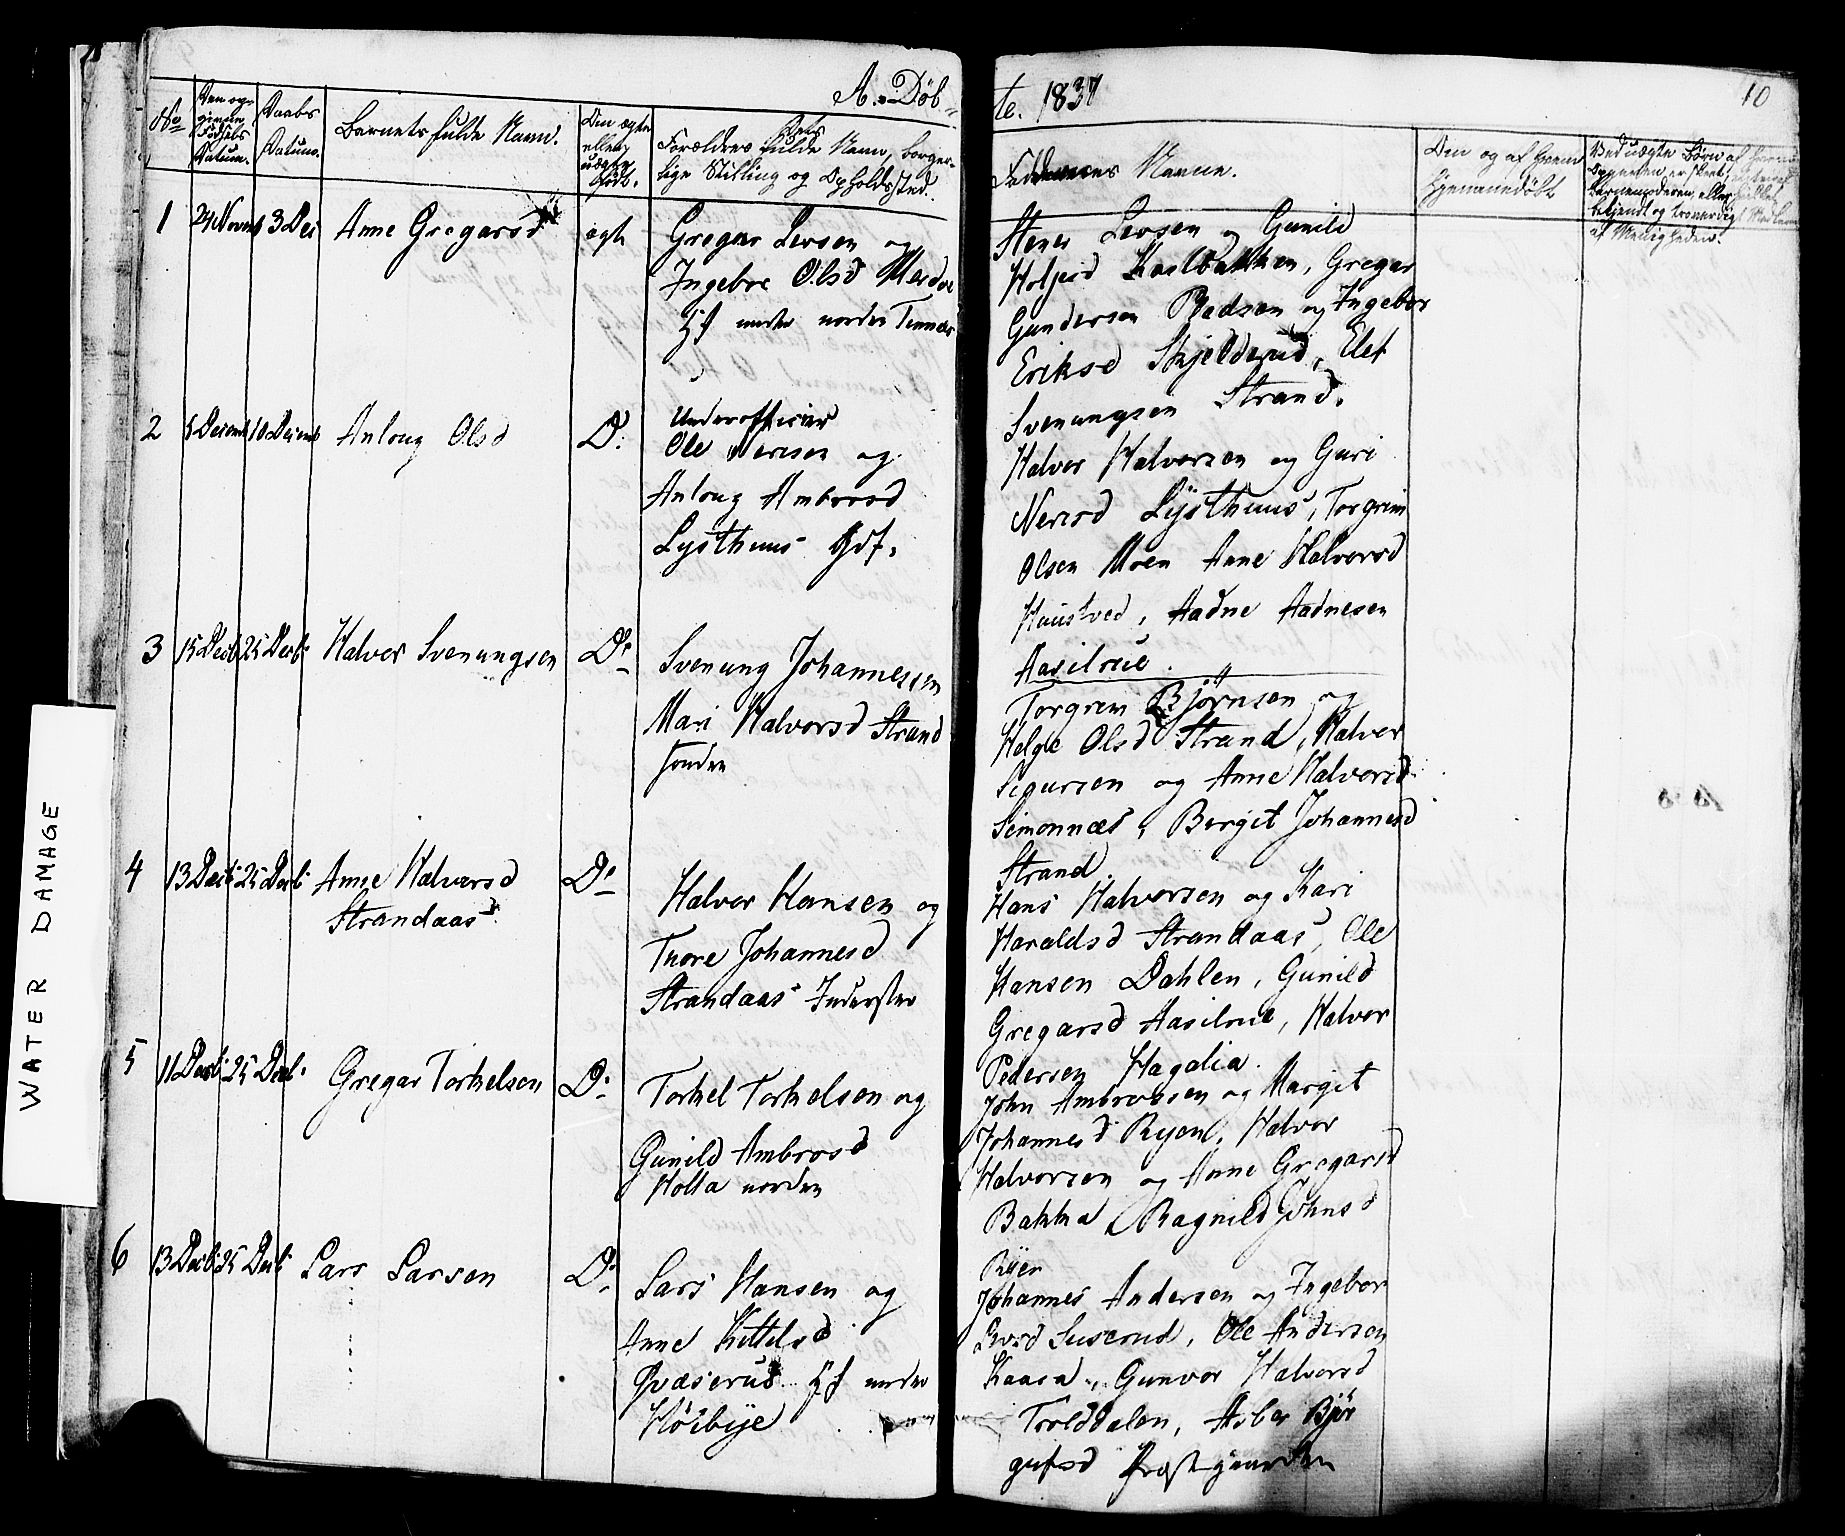 A. Döbte. 1837
10
No
Den opgivne Fødsels Datum.
Daabs Datum.
Barnets fulde Navn.
Om ægte eller uægte Født.
Forældres fulde Navn, borgerlige Stilling og Opholdssted.
Faddernes Navne.
Om og af hvem hjemmedøbt
1
24 Novemb
3 Dec
Anne Gregarsd
ægte
Gregar Levsen og
Ingebor Olsd
Hf under nordre Tinnæs
Stener Levsen og Gunild
Holjesd Kaslbakken, Gregar
Gundersen Rødsen og Ingebor
Eriksd Skjelderud, Elef
Svenungsen Strand.
2
5 Decemb
10 Decemb
Anloug Olsd
Do
Underofficier
Ole Nersen og
Anloug Ambrosd
Lysthuus Gdf.
Halvor Halvorsen og Guri
Nersd Lysthuus, Torgrim
Olsen Moen Anne Halvorsd
Huustved, Aadne Aadnesen
Aasilrue.
3
15 Decb
25 Decb.
Halvor Svenungsen
Do
Svenung Johannessen
Mari Halvorsd Strand
søndre
Torgrim Björnsen og
Helge Olsd Strand, Halvor
Sigursen og Anne Halvorsd
Simonnæs, Bergit Johannesd
Strand.
4
13 Decb
25 Decb
Anne Halvorsd
Strandaas
Do
Halvor Hansen og
Tuore Johannesd
Strandaas Inderster
Hans Halvorsen og Kari
Haraldsd Strandaas, Ole
Hansen Dahlen, Gunild
Gregarsd Aasilrue, Halvor
Pedersen Hagalia.
5
11 Decb
25 Decb.
Gregar Torkelsen
Do
Torkel Torkelsen og
Gunild Ambrosd
Holta nordre
John Ambrossen og Margit
Johannesd Ryen, Halvor
Halvorsen og Anne Gregarsd
Bakka, Ragnild Johnsd
Ryen
6
13 Decb
25 Decb
Lars Larsen
Do
Lars Hansen og
Anne Kittelsd
Qvæserud Hf under
Höibye
Johannes Andersen og Ingebor
Levsd Suserud, Ole Andersen
Kaasa, Gunvor Halvorsd
Trolddalen, Asber Björ
gufsd Præstgaarden
WATER DAMAGE